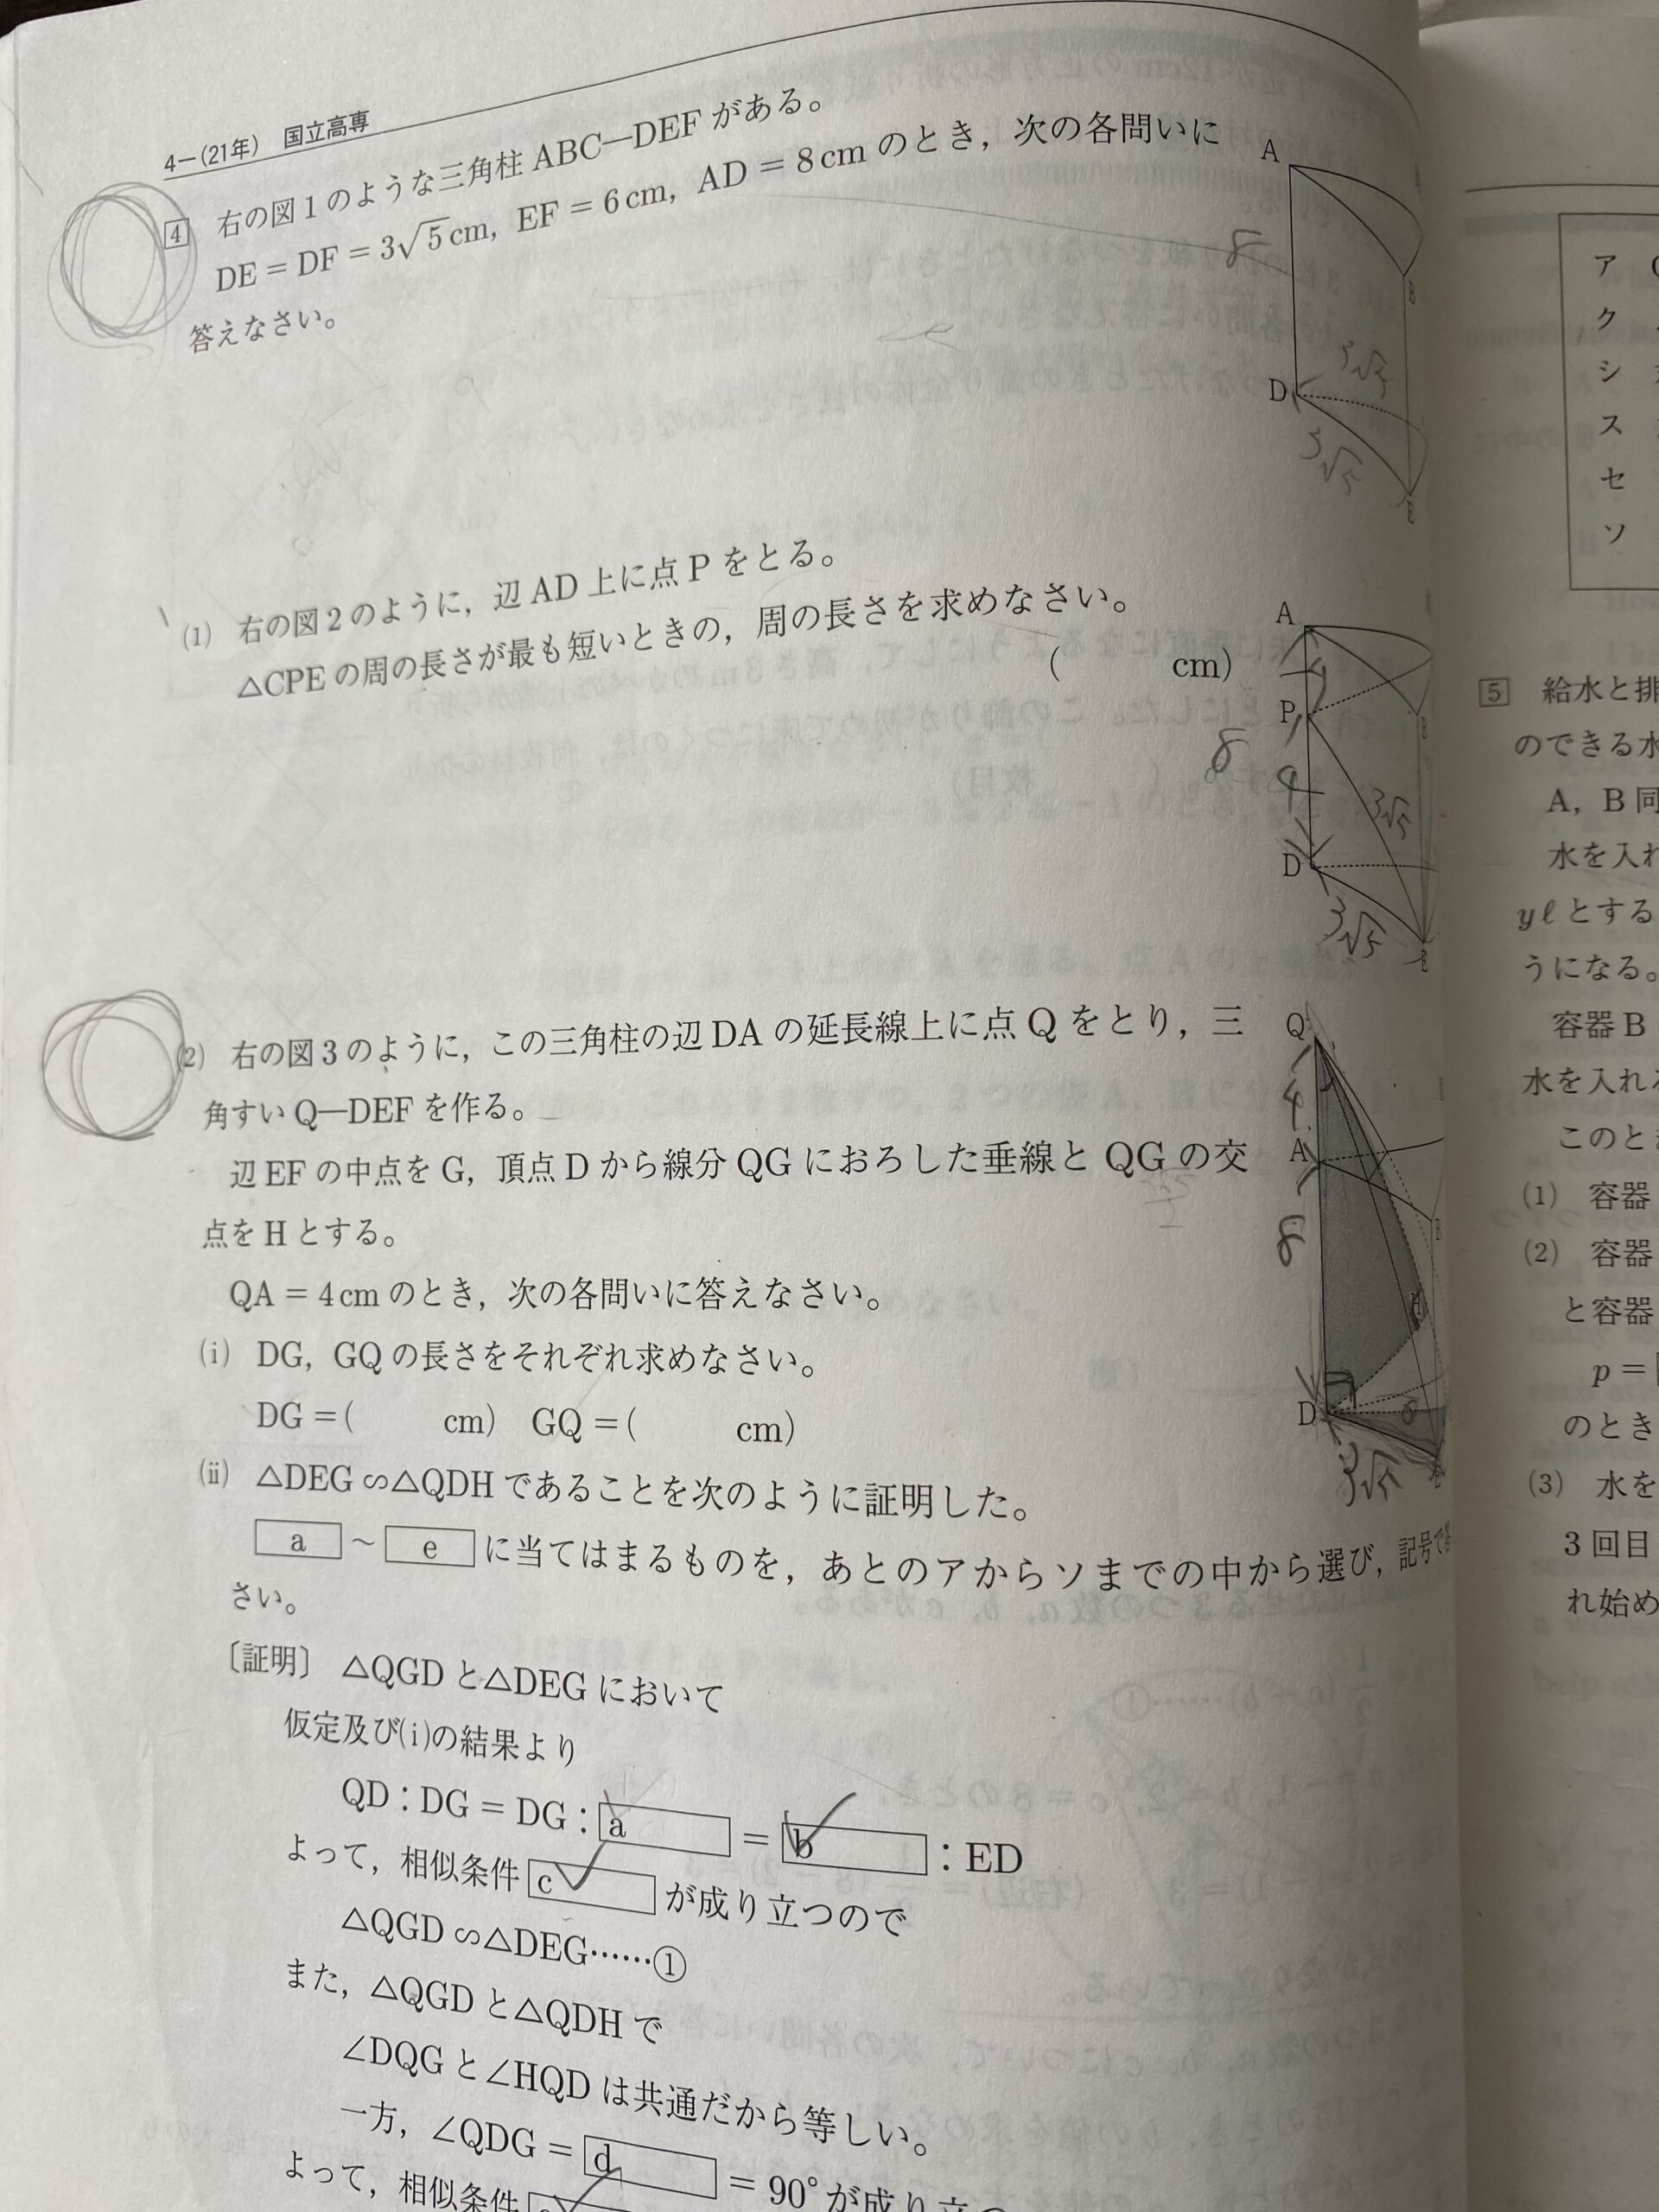 4—(21年) 国立高専
4 右の図1のような三角柱 ABC—DEF がある。
DE = DF = 3√5 cm, EF = 6 cm, AD = 8 cm のとき，次の各問いに
答えなさい。
A
8
B
D
3√5
3√5
E
(1) 右の図2のように，辺 AD 上に点 P をとる。
△CPE の周の長さが最も短いときの，周の長さを求めなさい。
( cm)
A
P
B
8
4
3√5
D
3√5
E
(2) 右の図3のように，この三角柱の辺 DA の延長線上に点 Q をとり，三
角すい Q—DEF を作る。
辺 EF の中点を G，頂点 D から線分 QG におろした垂線と QG の交
点を H とする。
QA = 4 cm のとき，次の各問いに答えなさい。
(i) DG，GQ の長さをそれぞれ求めなさい。
DG = ( cm) GQ = ( cm)
(ii) △DEG ∽ △QDH であることを次のように証明した。
a ～ e に当てはまるものを，あとのアからソまでの中から選び，記号で
さい。
Q
4
A
8
H
D
6
3√5
〔証明〕 △QGD と △DEG において
仮定及び(i)の結果より
QD : DG = DG : a = b : ED
よって，相似条件 c が成り立つので
△QGD ∽ △DEG……①
また，△QGD と △QDH で
∠DQG と ∠HQD は共通だから等しい。
一方，∠QDG = d = 90° が成り立つ
よって，相似条件
ア
ク
シ
ス
セ
ソ
5 給水と排
のできる水
A，B 同
水を入れ
yℓ とする
うになる。
容器 B
水を入れる
このとき
(1) 容器
(2) 容器
と容器
p =
のとき
(3) 水を
3回目
れ始め